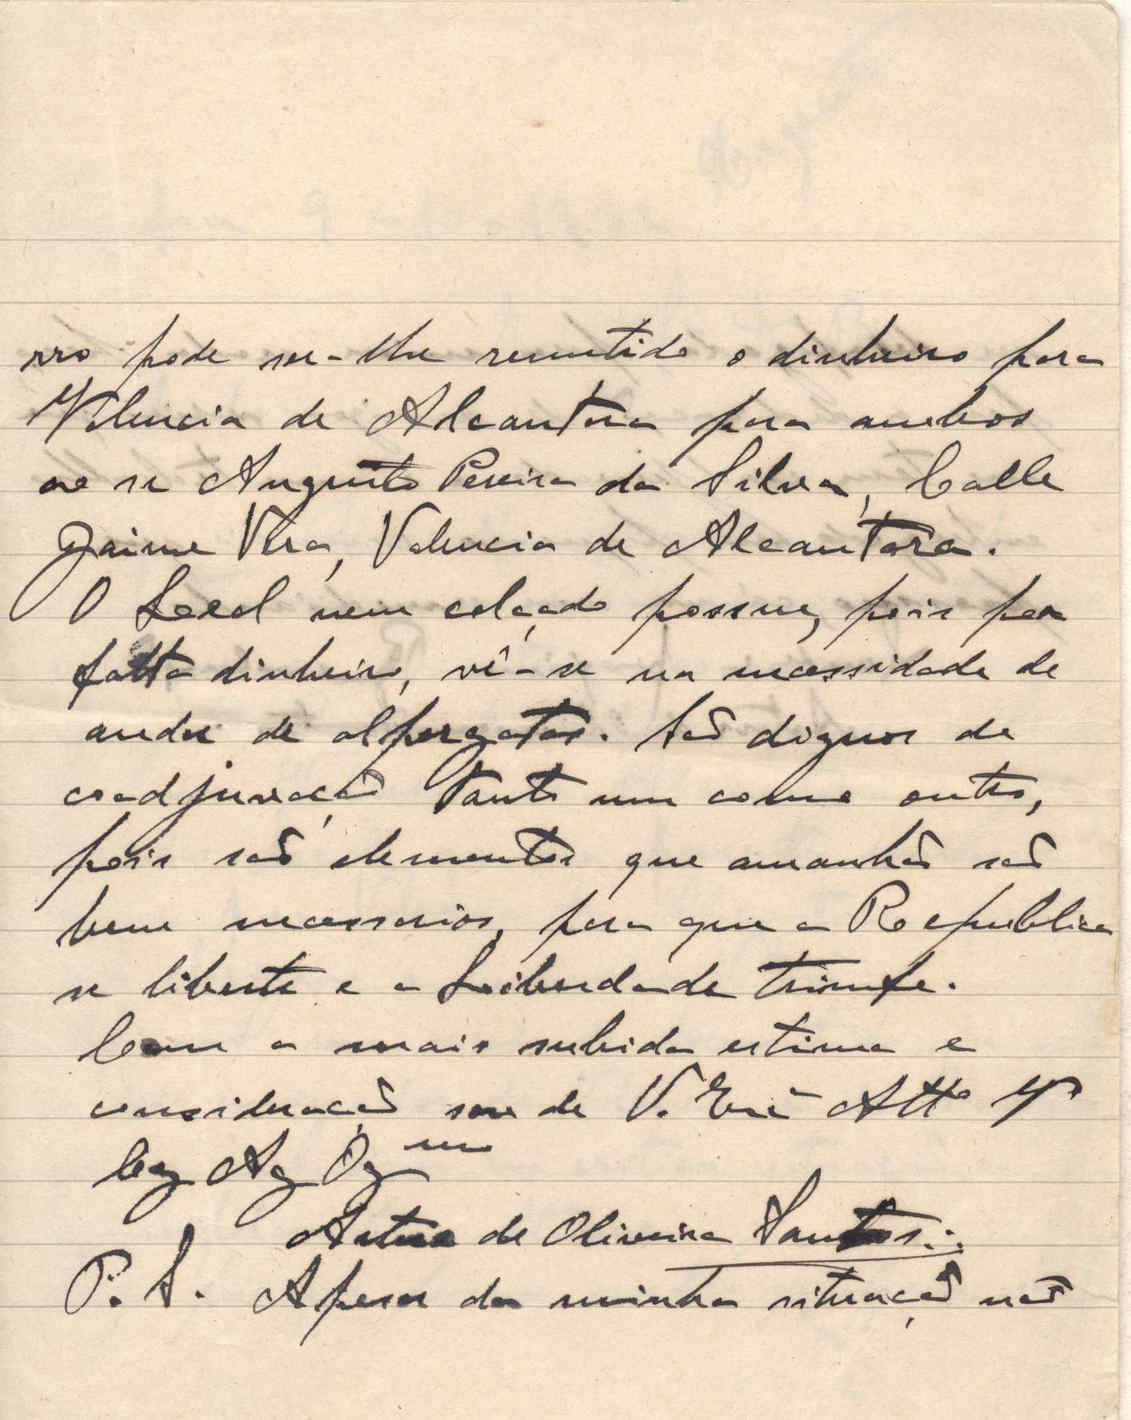 rro pode ser-lhe remetido o dinheiro para
Valencia de Alcantara para ambos
ao sr Augusto Pereira da Silva, Calle
Jaime Vera, Valencia de Alcantara.
O Leal nem calçado possue, pois por
falta dinheiro, vê-se na necessidade de
andar de alpergatas. São dignos de
coadjuvação tanto um como outro,
pois são elementos que amanhã são
bem necessarios, para que a Republica
se liberte e a Liberdade triunfe.
Com a mais subida estima e
consideração sou de V. Exciª Attº Vº
Cg Ag Og mo
Artur de Oliveira Santos.:.
P. S. Apesar da minha situação não